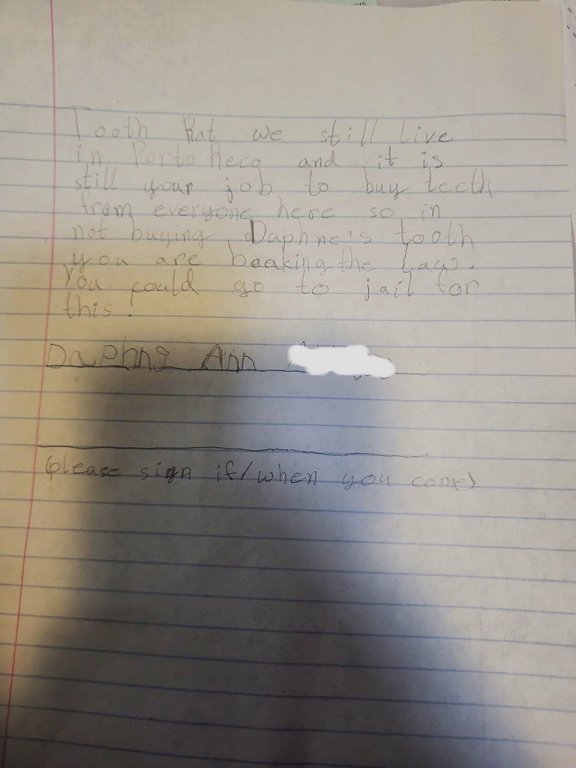 Tooth Rat we still live
in Porto Reca and it is
still your job to buy teeth
from everyone here so in
not buying Daphne's tooth
you are baaking the Law.
You could go to jail for
this.
Daphne Ann
(please sign if/when you come)